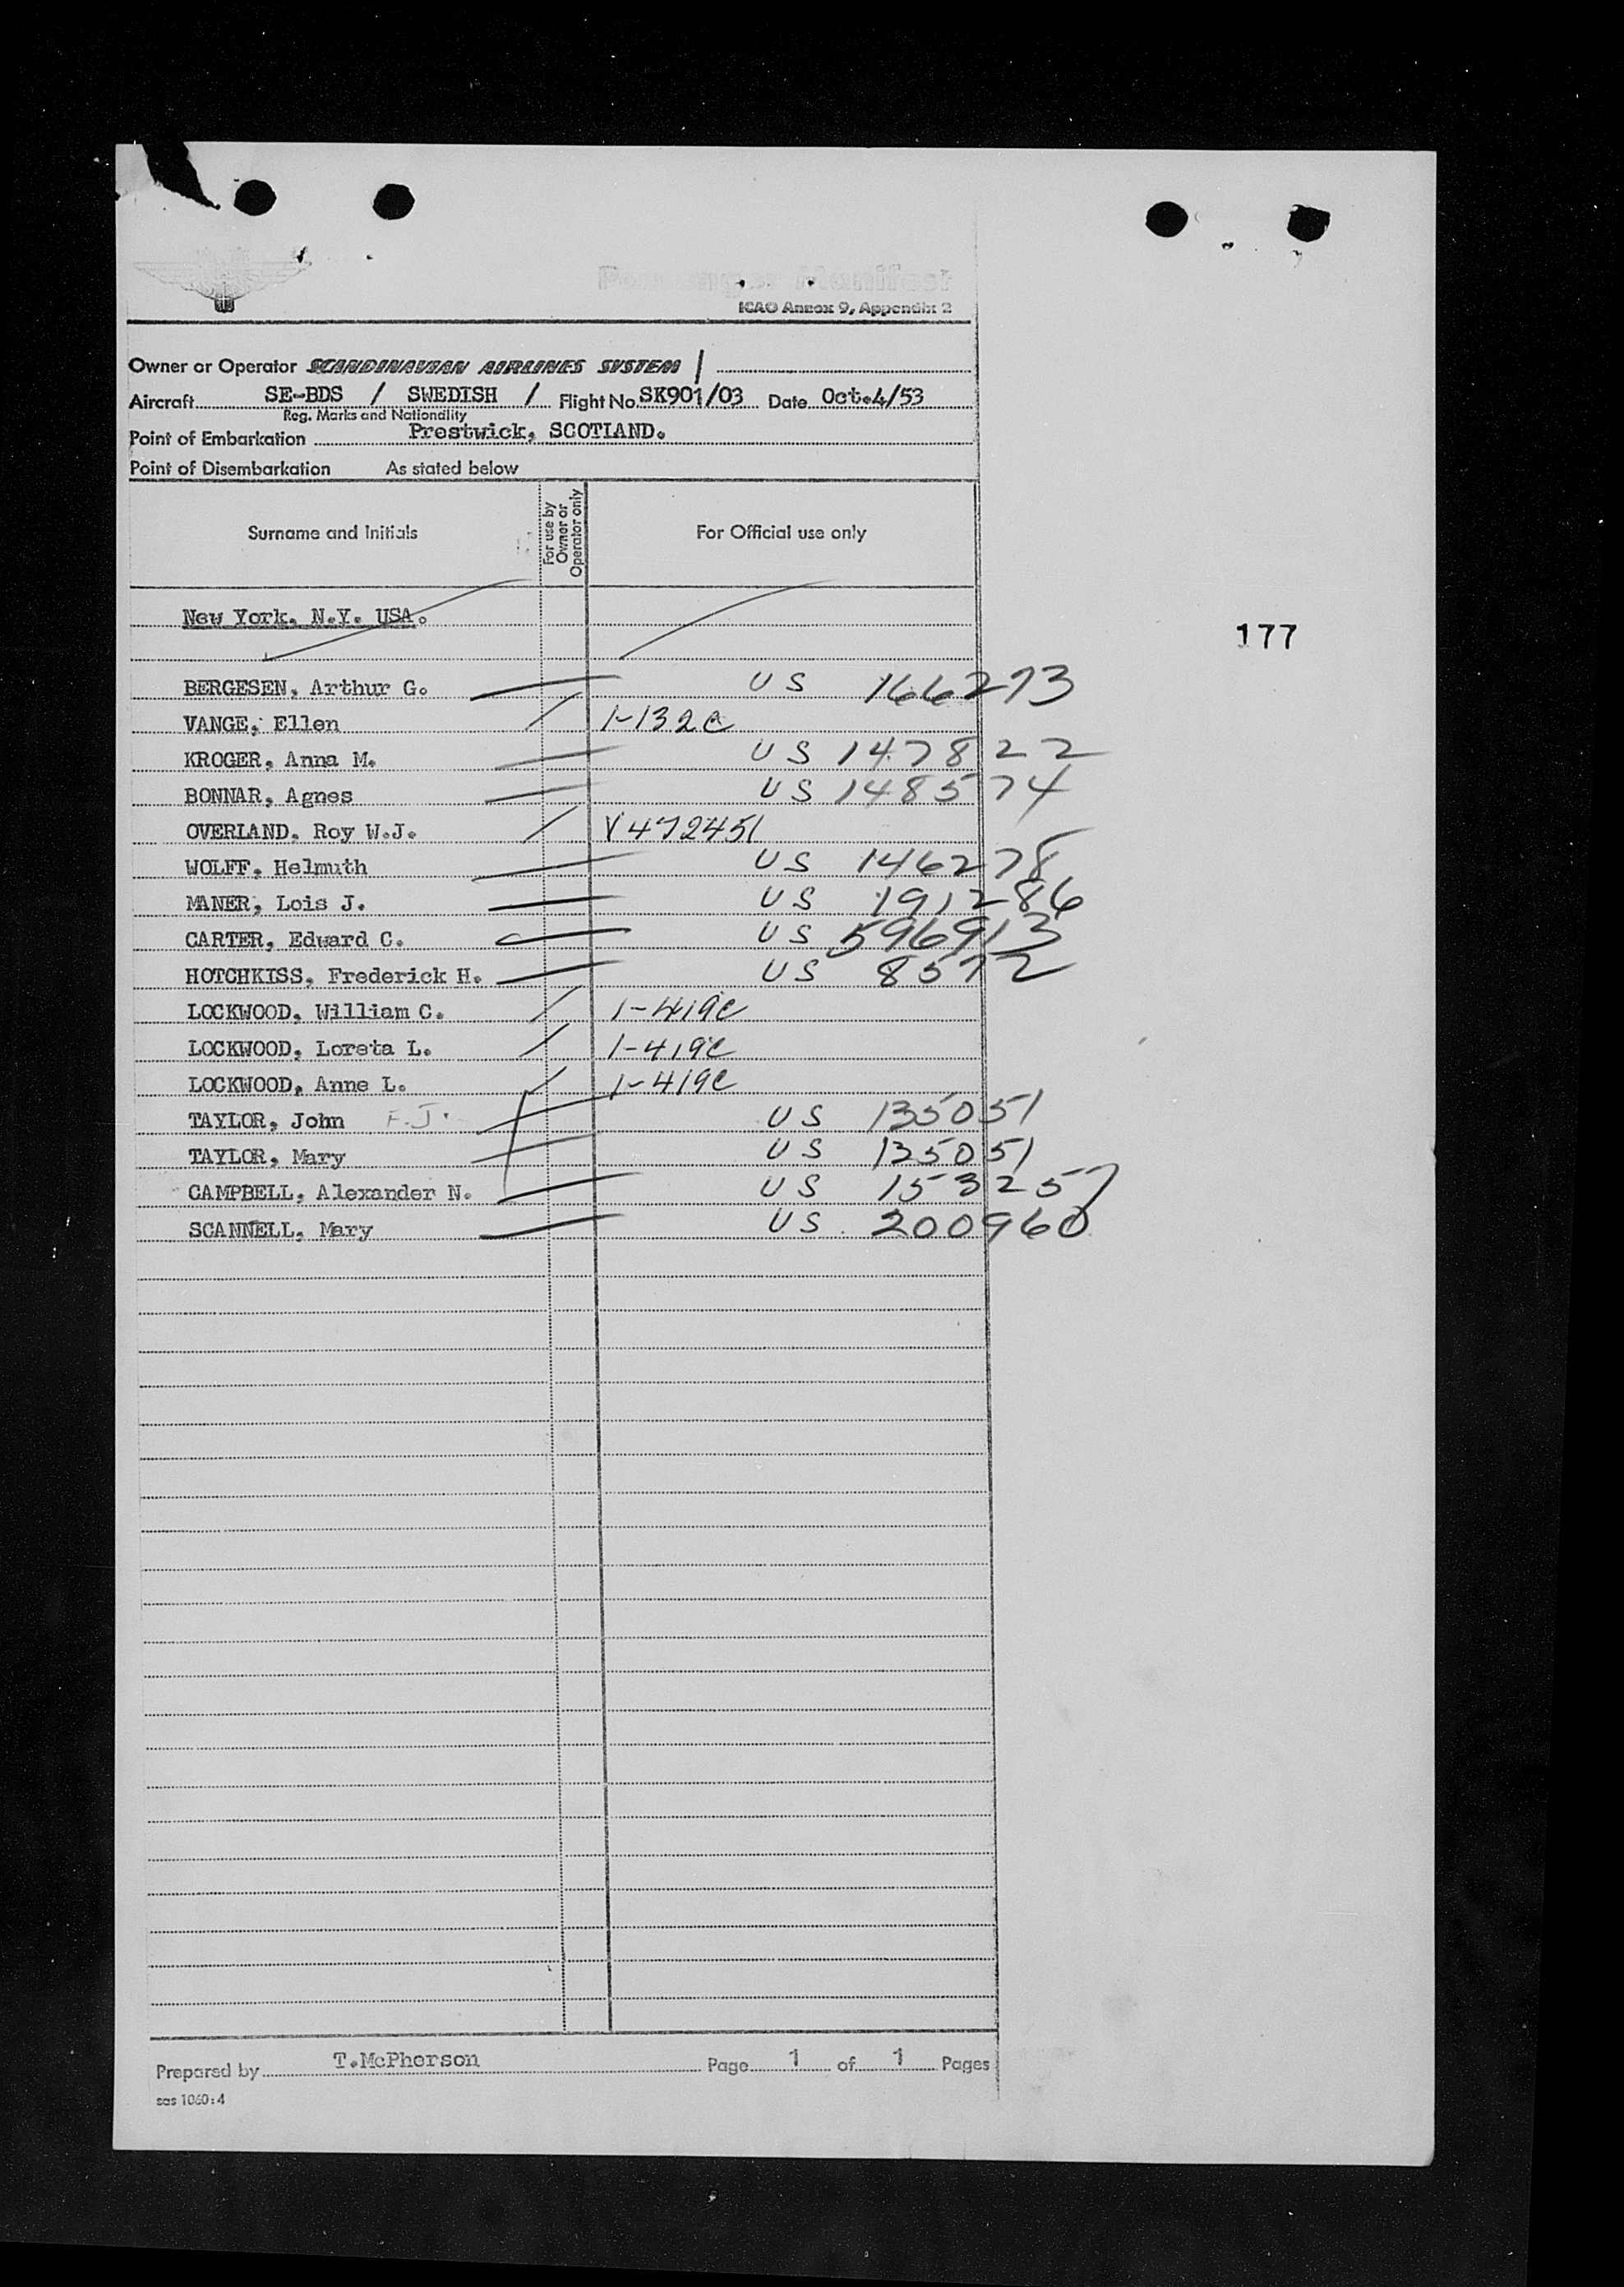 Passenger Manifest
ICAO Annex 9, Appendix 2
Owner or Operator SCANDINAVIAN AIRLINES SYSTEM /
Aircraft SE-BDS / SWEDISH / Flight No. SK901/03 Date Oct.4/53
Reg. Marks and Nationality
Point of Embarkation Prestwick, SCOTLAND.
Point of Disembarkation As stated below
Surname and Initials For use by Owner or Operator only For Official use only
New York, N.Y. USA.
177
BERGESEN, Arthur G. US 166273
VANGE, Ellen 1-132C
KROGER, Anna M. US 147822
BONNAR, Agnes US 148574
OVERLAND, Roy W.J. V472451
WOLFF, Helmuth US 146278
MANER, Lois J. US 191286
CARTER, Edward C. US 596913
HOTCHKISS, Frederick H. US 8572
LOCKWOOD, William C. 1-419C
LOCKWOOD, Loreta L. 1-419C
LOCKWOOD, Anne L. 1-419C
TAYLOR, John F.J. US 135051
TAYLOR, Mary US 135051
CAMPBELL, Alexander N. US 153257
SCANNELL, Mary US 200960
Prepared by T.McPherson Page 1 of 1 Pages
sas 1060:4